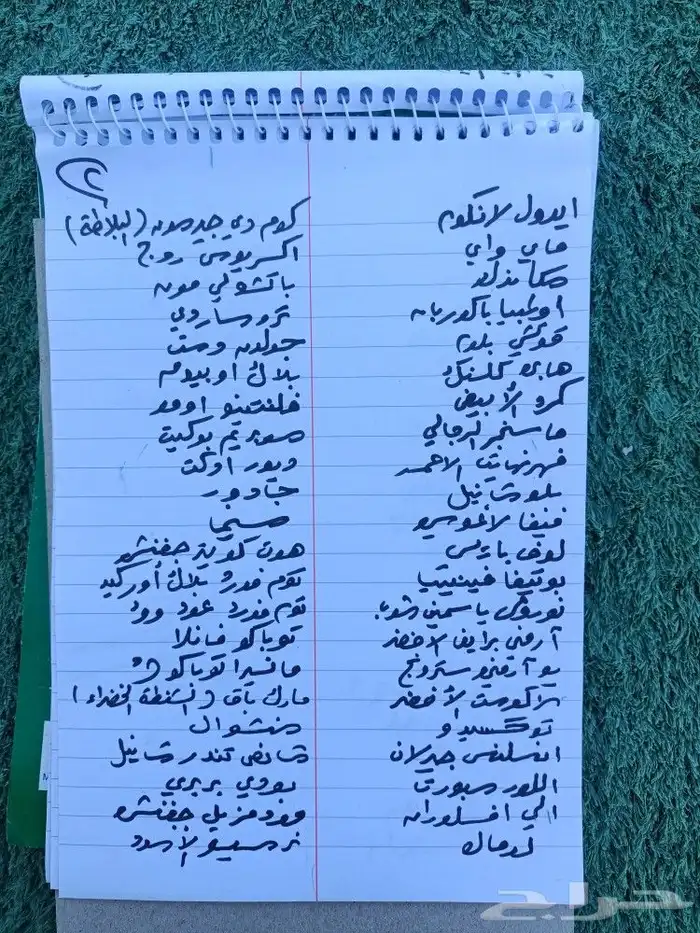 ٢
ايدول لانكوم
ماي واي
سكاندل
اولمبيا باكوربان
قوتشي بلوم
هابي كلينك
كرد الأبيض
هاسنمر الرجالي
فهرنهايت الاحمر
بلو شانيل
فيفا لاغوسيو
لوف باريس
بوتيغا فينيتيا
نوروش ياسميني
أرمني برايف الاخضر
يو أرمني سترونج
لاكوست الأخضر
توكسيدو
انسلنس جيرلان
اللور سبورت
الي افسلوران
لومال
كوم دي جرسون (البلاطة)
اكسريوس روج
باتشولي مون
تروساردي
جولدن وست
بلاك أوبيوم
فلنتينو اومو
سوبريم بوكيت
ديور اوكت
جادور
سي
هوت كوتير جفنشي
توم فورد بلاك أوركيد
توم فورد عود وود
توباكو فانلا
مانسيرا توباكو
مارك باق (الشنطة الخضراء)
منشوال
شانص تندر شانيل
بودي بربري
مودمزيل جفنشي
نرسيسو الأسود
حراج